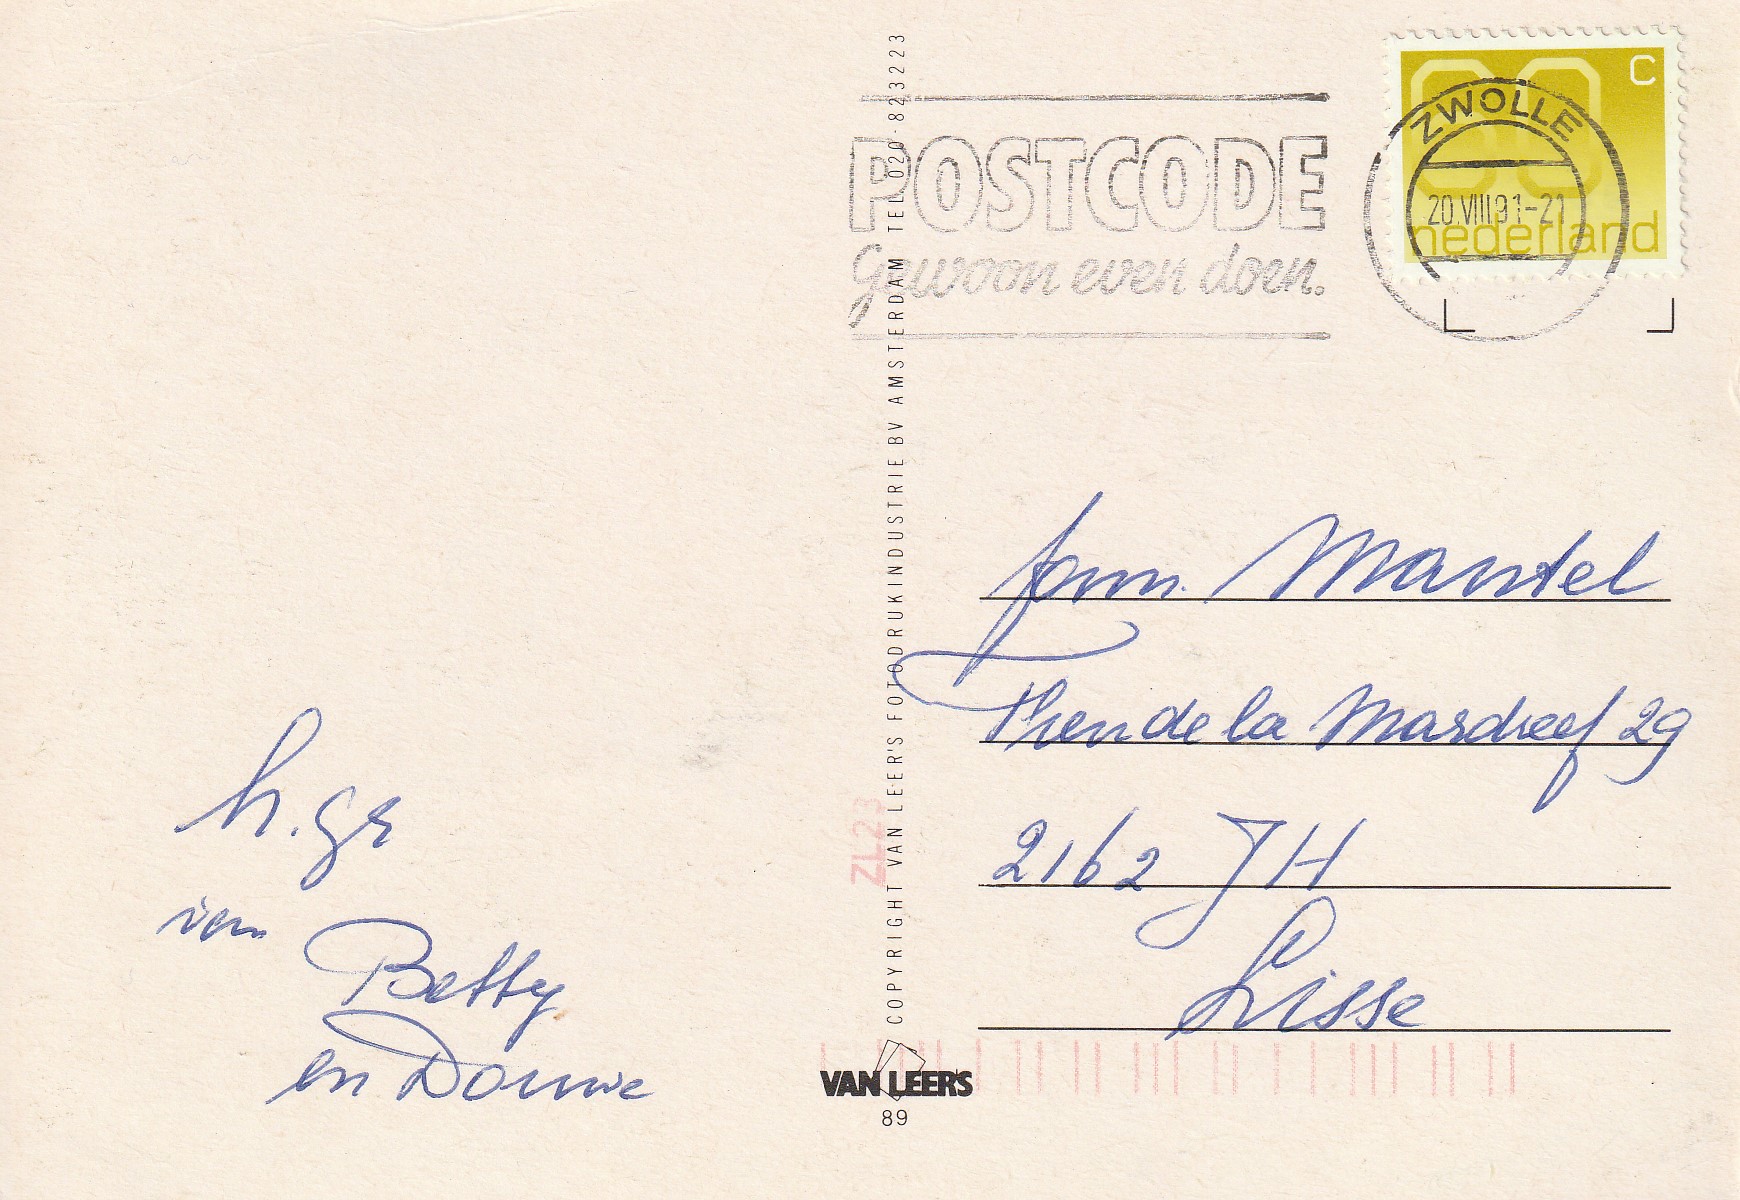 h. gr
van
Betty
en Douwe
COPYRIGHT VAN LEER'S FOTODRUKINDUSTRIE BV AMSTERDAM TEL 020-823223
ZL23
VAN LEER'S
89
POSTCODE
Gewoon even doen.
C
ZWOLLE
20.VIII.91-21
nederland
fam. Mantel
de la Mardreef 29
2162 JH
Lisse